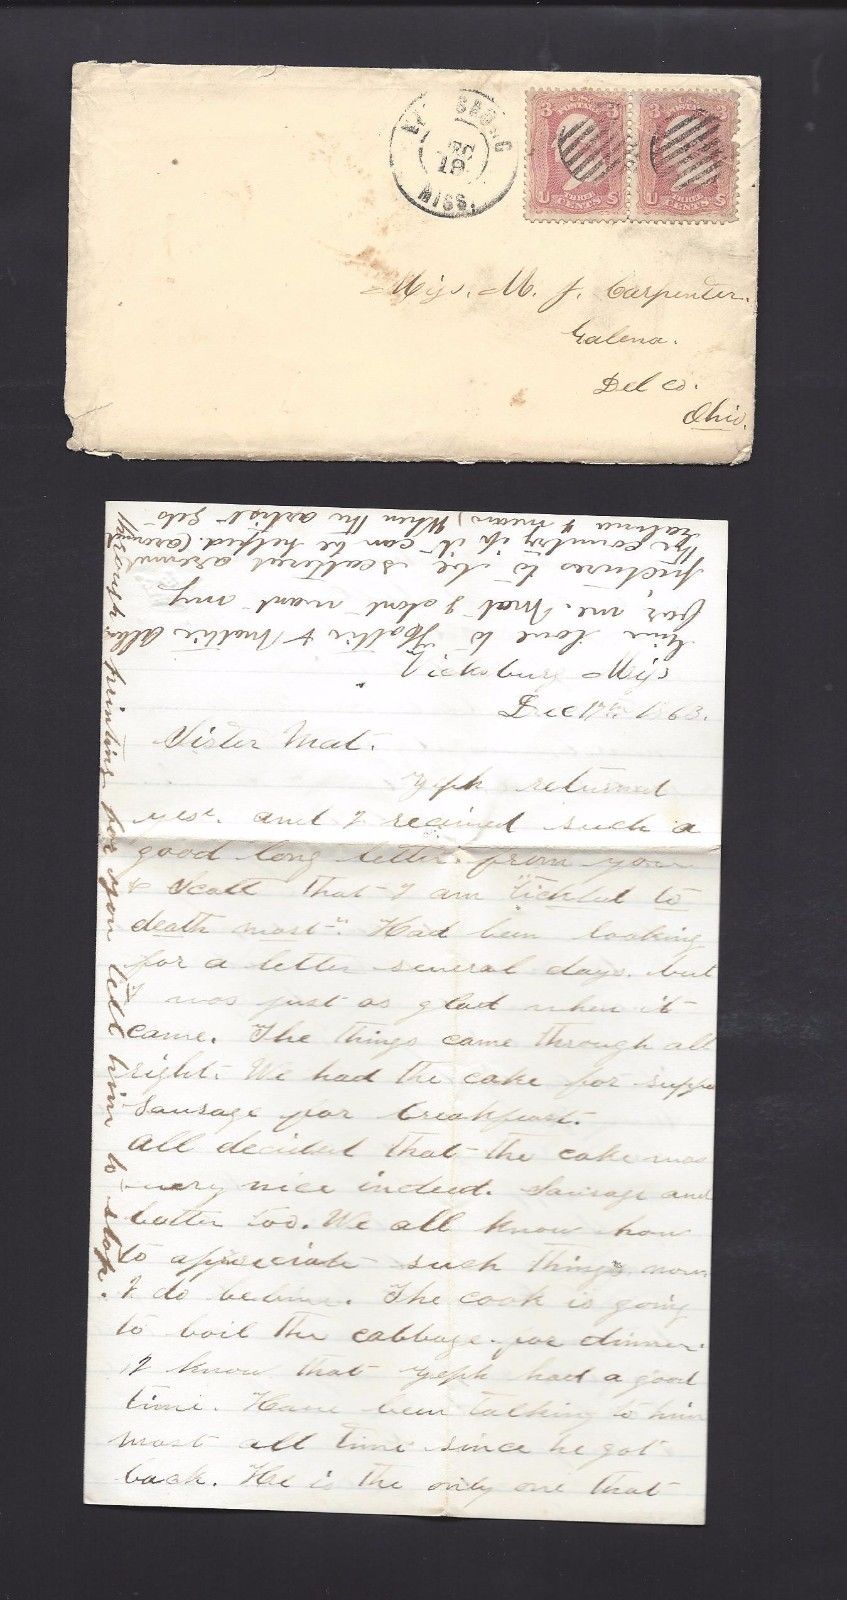 VICKSBURG
DEC
19
MISS.
3 U.S. POSTAGE 3
U THREE CENTS S
3 U.S. POSTAGE 3
U THREE CENTS S
Miss. M. J. Carpenter.
Galena.
Del co.
Ohio.
Give love to Hattie & Mattie
for me. Mat I dont want my
pictures to be scattered around
the country if it can be helped. (around
Galena I mean) When the artist gets
through printing for you tell him to stop.
Vicksburg Miss
Dec 17th 1863.
Sister Mat.
Zeph returned
yest. and I received such a
good long letter from you
& Scott that I am "tickled to
death most". Had been looking
for a letter several days. but
I was just as glad when it
came. The things came through all
right. We had the cake for supper
Sausage for breakfast.
All decided that the cake was
very nice indeed. Sausage and
butter too. We all know how
to appreciate such things now
I do believe. The cook is going
to boil the cabbage for dinner.
I know that Zeph had a good
time. Have been talking to him
most all time since he got
back. He is the only one that